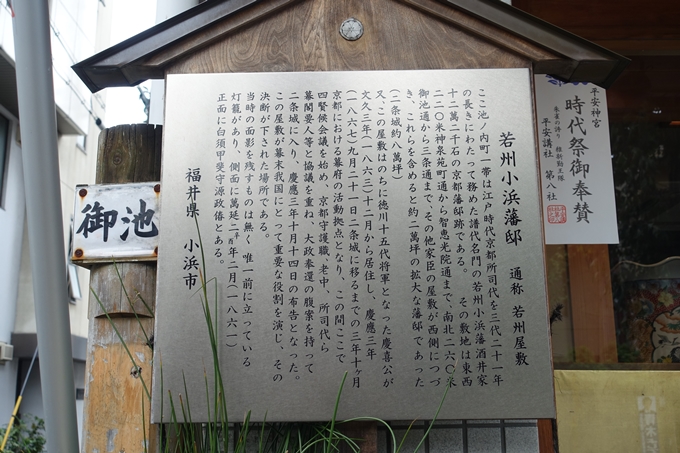 若州小浜藩邸 通称 若州屋敷
ここ池ノ内町一帯は江戸時代京都所司代を三代二十一年
の長きにわたって務めた譜代名門の若州小浜藩酒井家
十二万二千石の京都藩邸跡である。 その敷地は東西
二二〇米神泉苑町通から智恵光院通まで、南北二六〇米
御池通から三条通まで、その他家臣の屋敷が西側につづ
き、これらを含めると約二萬坪の拡大な藩邸であった
(二条城約八萬坪)
又、この屋敷はのちに徳川十五代将軍となった慶喜公が
文久三年(一八六三)十二月から居住し、慶應三年
(一八六七)九月二十一日二条城に移るまでの三年十ヶ月
京都における幕府の活動拠点となり、この間ここで
四賢候会議を始め、京都守護職、老中、所司代ら
幕閣要人等と協議を重ね、大政奉還の腹案を持って
二条城に入り、慶應三年十月十四日の布告となった。
この屋敷が幕末我国にとって重要な役割を演じ、その
決断が下された場所である。
当時の面影を残すものは無く 唯一前に立っている
灯籠があり、側面に萬延二酉年二月(一八六一)
正面に白須甲斐守源政偆とある。
福井県 小浜市
御池
平安神宮
時代祭御奉賛
朱雀の誇り 維新勤王隊
平安講社 第八社